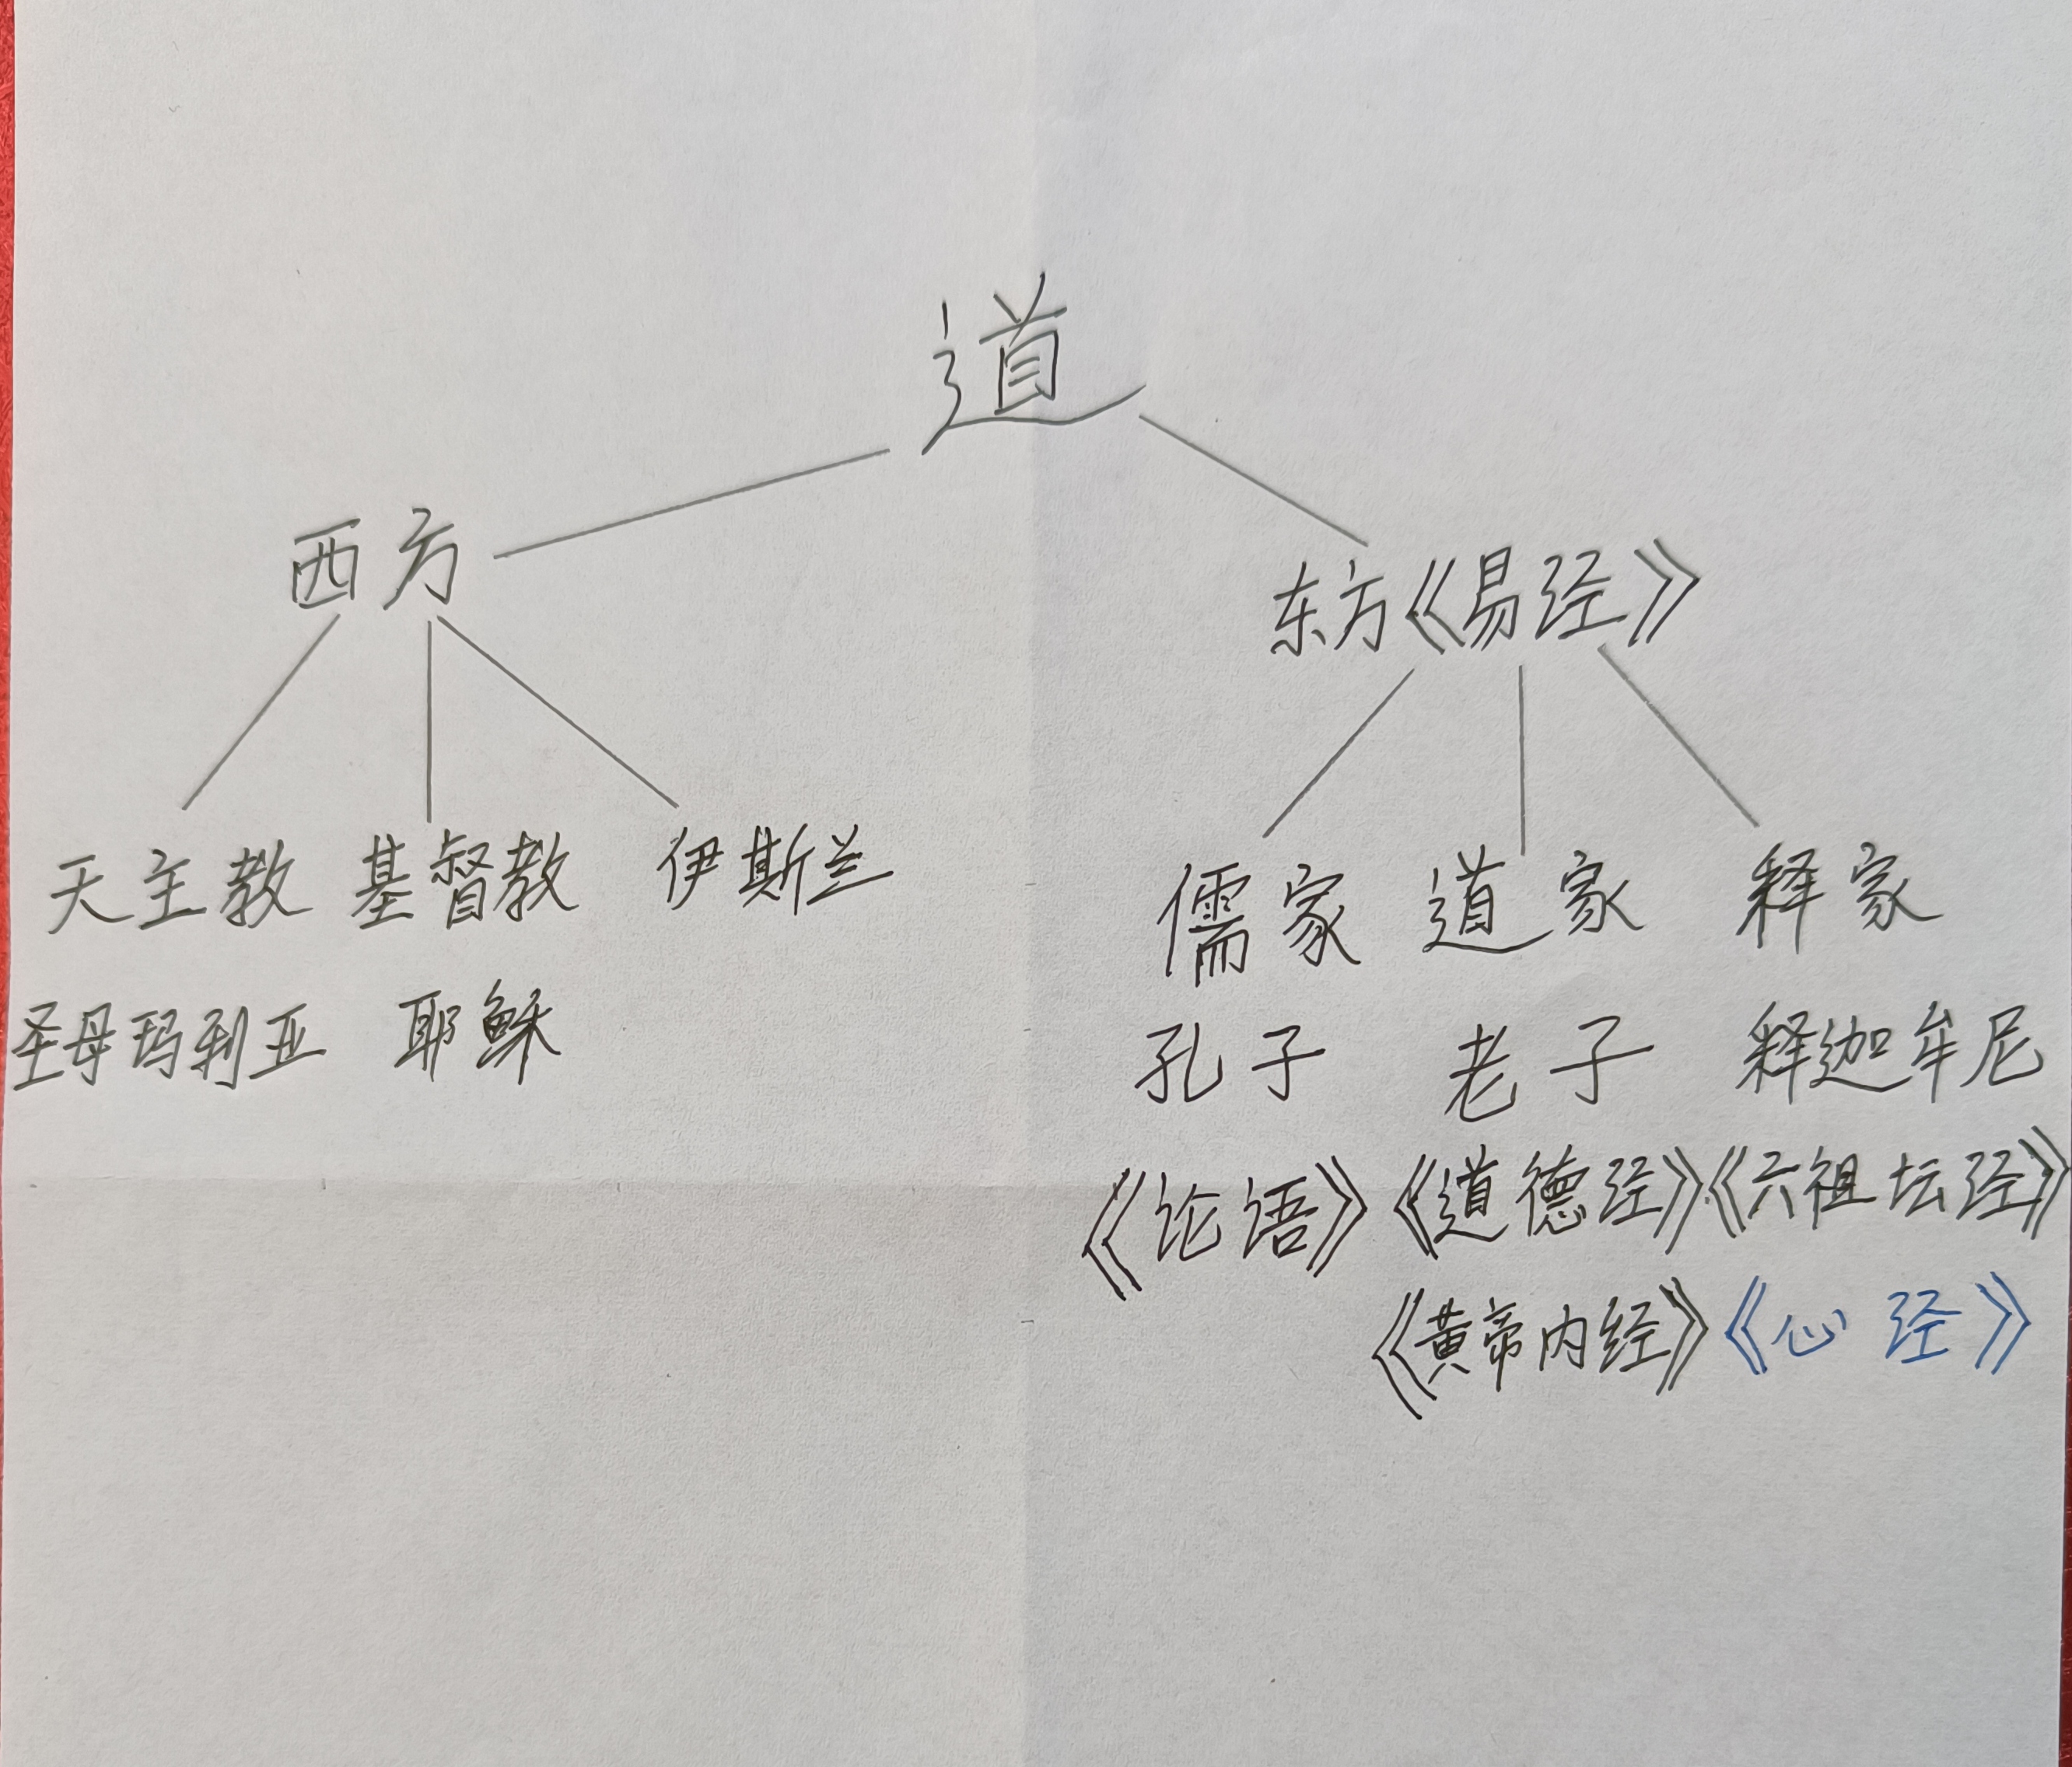 道
西方
东方《易经》
天主教 基督教 伊斯兰
儒家 道家 释家
圣母玛利亚 耶稣
孔子 老子 释迦牟尼
《论语》《道德经》《六祖坛经》
《黄帝内经》《心经》